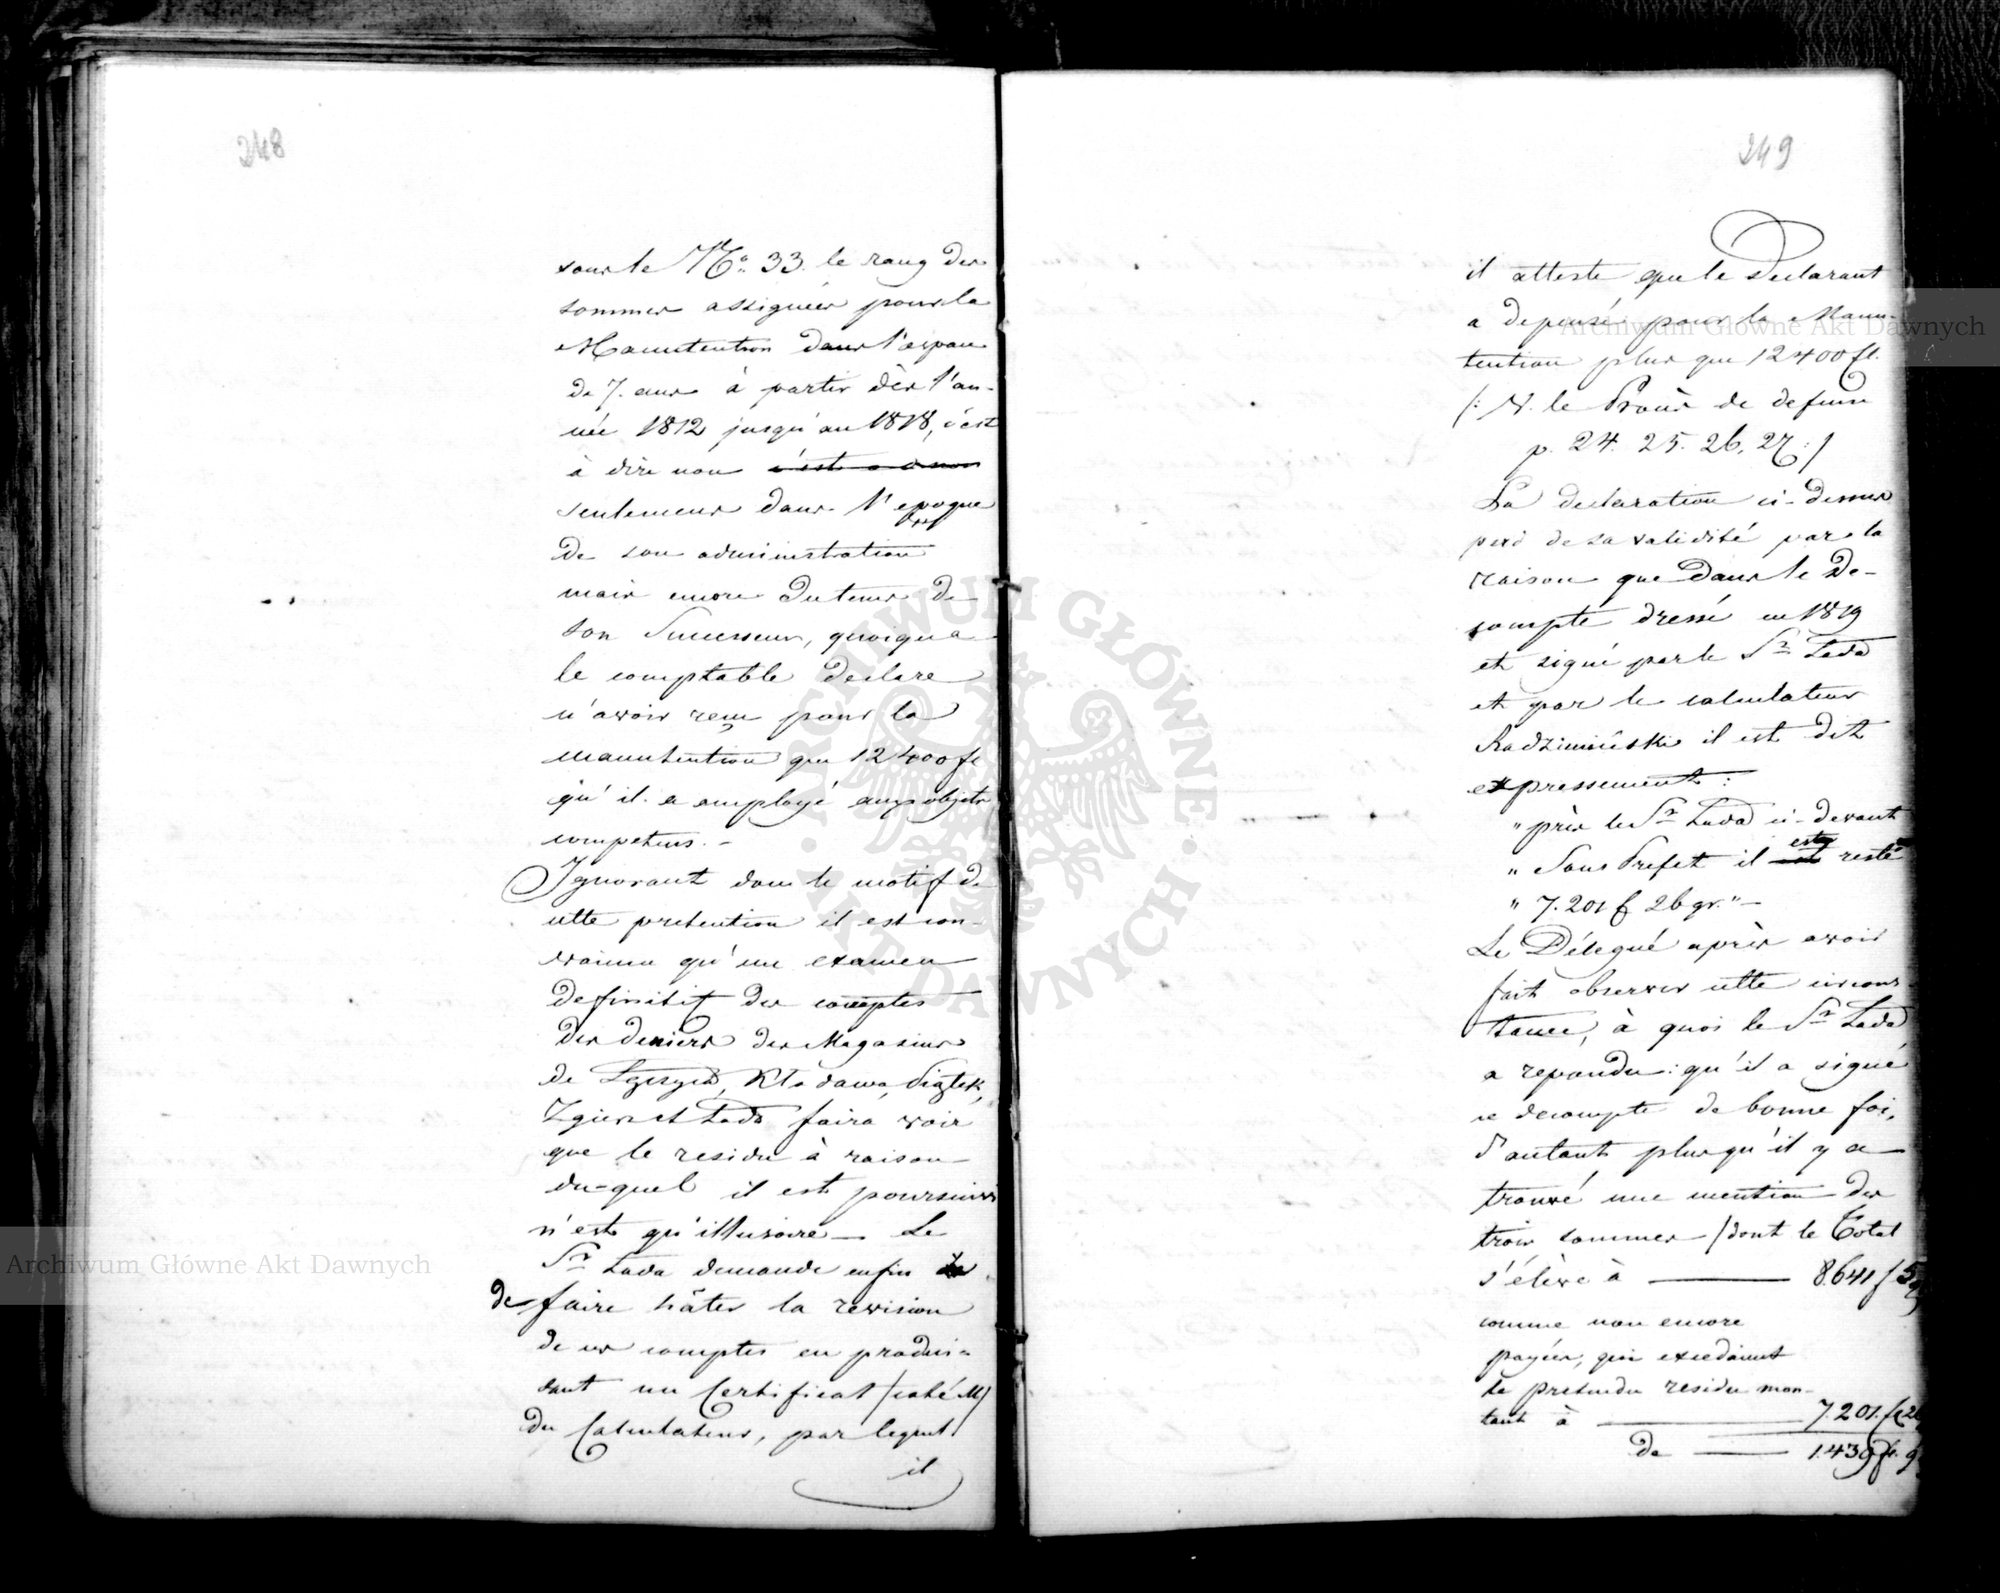 248
sous le No. 33. le rang des
sommes assignées pour la
Manutention dans l'espace
de 7. ans à partir dès l'an-
née 1812 jusqu'au 1818, c'est
à dire non c'est a d non
seulement dans l'epoque
de son administration
mais encore du tems de
son Successeur, quoique
le comptable declare
n'avoir reçu pour la
manutention que 12400 fl
qu'il a employé aux objets
competens. -
Ignorant donc le motif de
cette pretention il est con-
vaincu qu'un examen
definitif des comptes
des deniers des Magasins
de Zgierz et Lada faira voir
que le residu à raison
du-quel il est poursuivi
n'est qu'illusoire – Le
Sr Lada demande enfin
de faire hâter la revision
de ces comptes en produi-
sant un Certificat /coté M/
du Calculateur, par lequel
il
249
il atteste que le Declarant
a depensé pour la Manu-
tention plus que 12400 fl.
/: V. le Procès de defense
p. 24. 25. 26. 27 :/
La declaration ci-dessus
perd de sa validité par la
raison que dans le De-
compte dressé en 1819
et signé par le Sr Lada
et par le calculateur
Radzimiński il est dit
expressement :
" près le Sr Lada ci-devant
" Sous Prefet il est resté
" 7.201 f 26 gr." –
Le Délegué après avoir
fait observer cette circons-
tance, à quoi le Sr Lada
a repondu : qu'il a signé
ce decompte de bonne foi,
d'autant plus qu'il y a
trouvé une mention des
trois sommes /dont le Total
s'élève à 8.641 f 5 g
comme non encore
payées, qui excedaient
le pretendu residu mon-
tant à 7.201. fl 26
de 1.439 fl. 9
Archiwum Główne Akt Dawnych
Archiwum Główne Akt Dawnych
ARCHIWUM GŁÓWNE AKT DAWNYCH